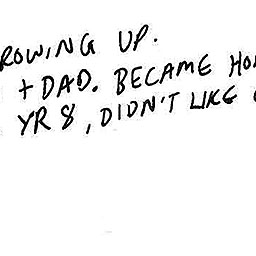 ROWING UP.
+ DAD. BECAME HO
YR 8, DIDN'T LIKE